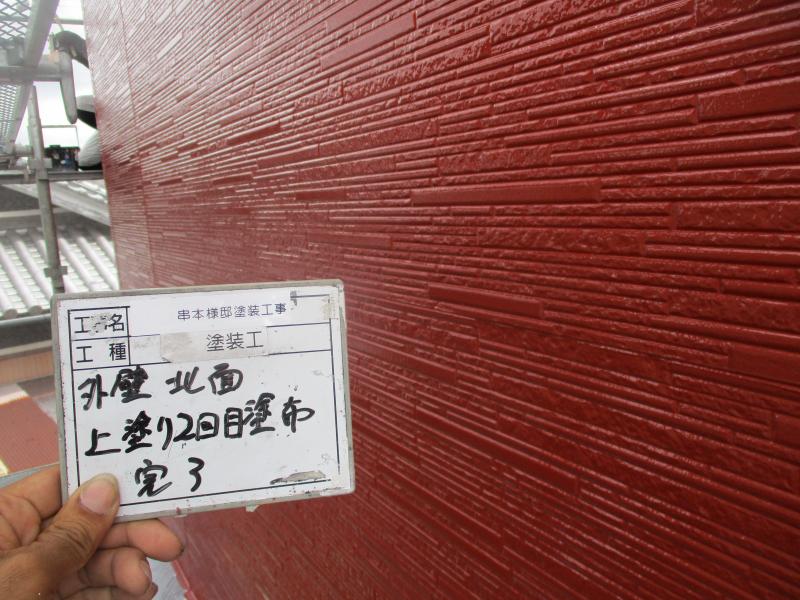 工事名 串本様邸塗装工事
工種 塗装工
外壁 北面
上塗り2回目塗布
完了